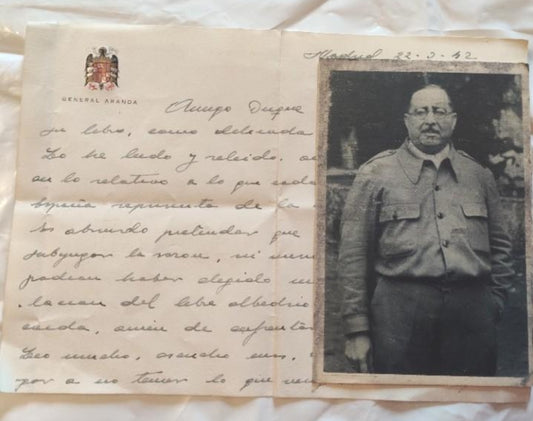 GENERAL ARANDA
Madrid 22-3-42
Amigo Duque
su libro, como delicada
Lo he leido y releido,
en lo relativo a lo que cada
España representa de la
Es absurdo pretender que
subyugar la razon, ni
podian haber elegido
lacion del libre albedrio
caida, amen de
Leo mucho, escucho mas,
por a no temer lo que